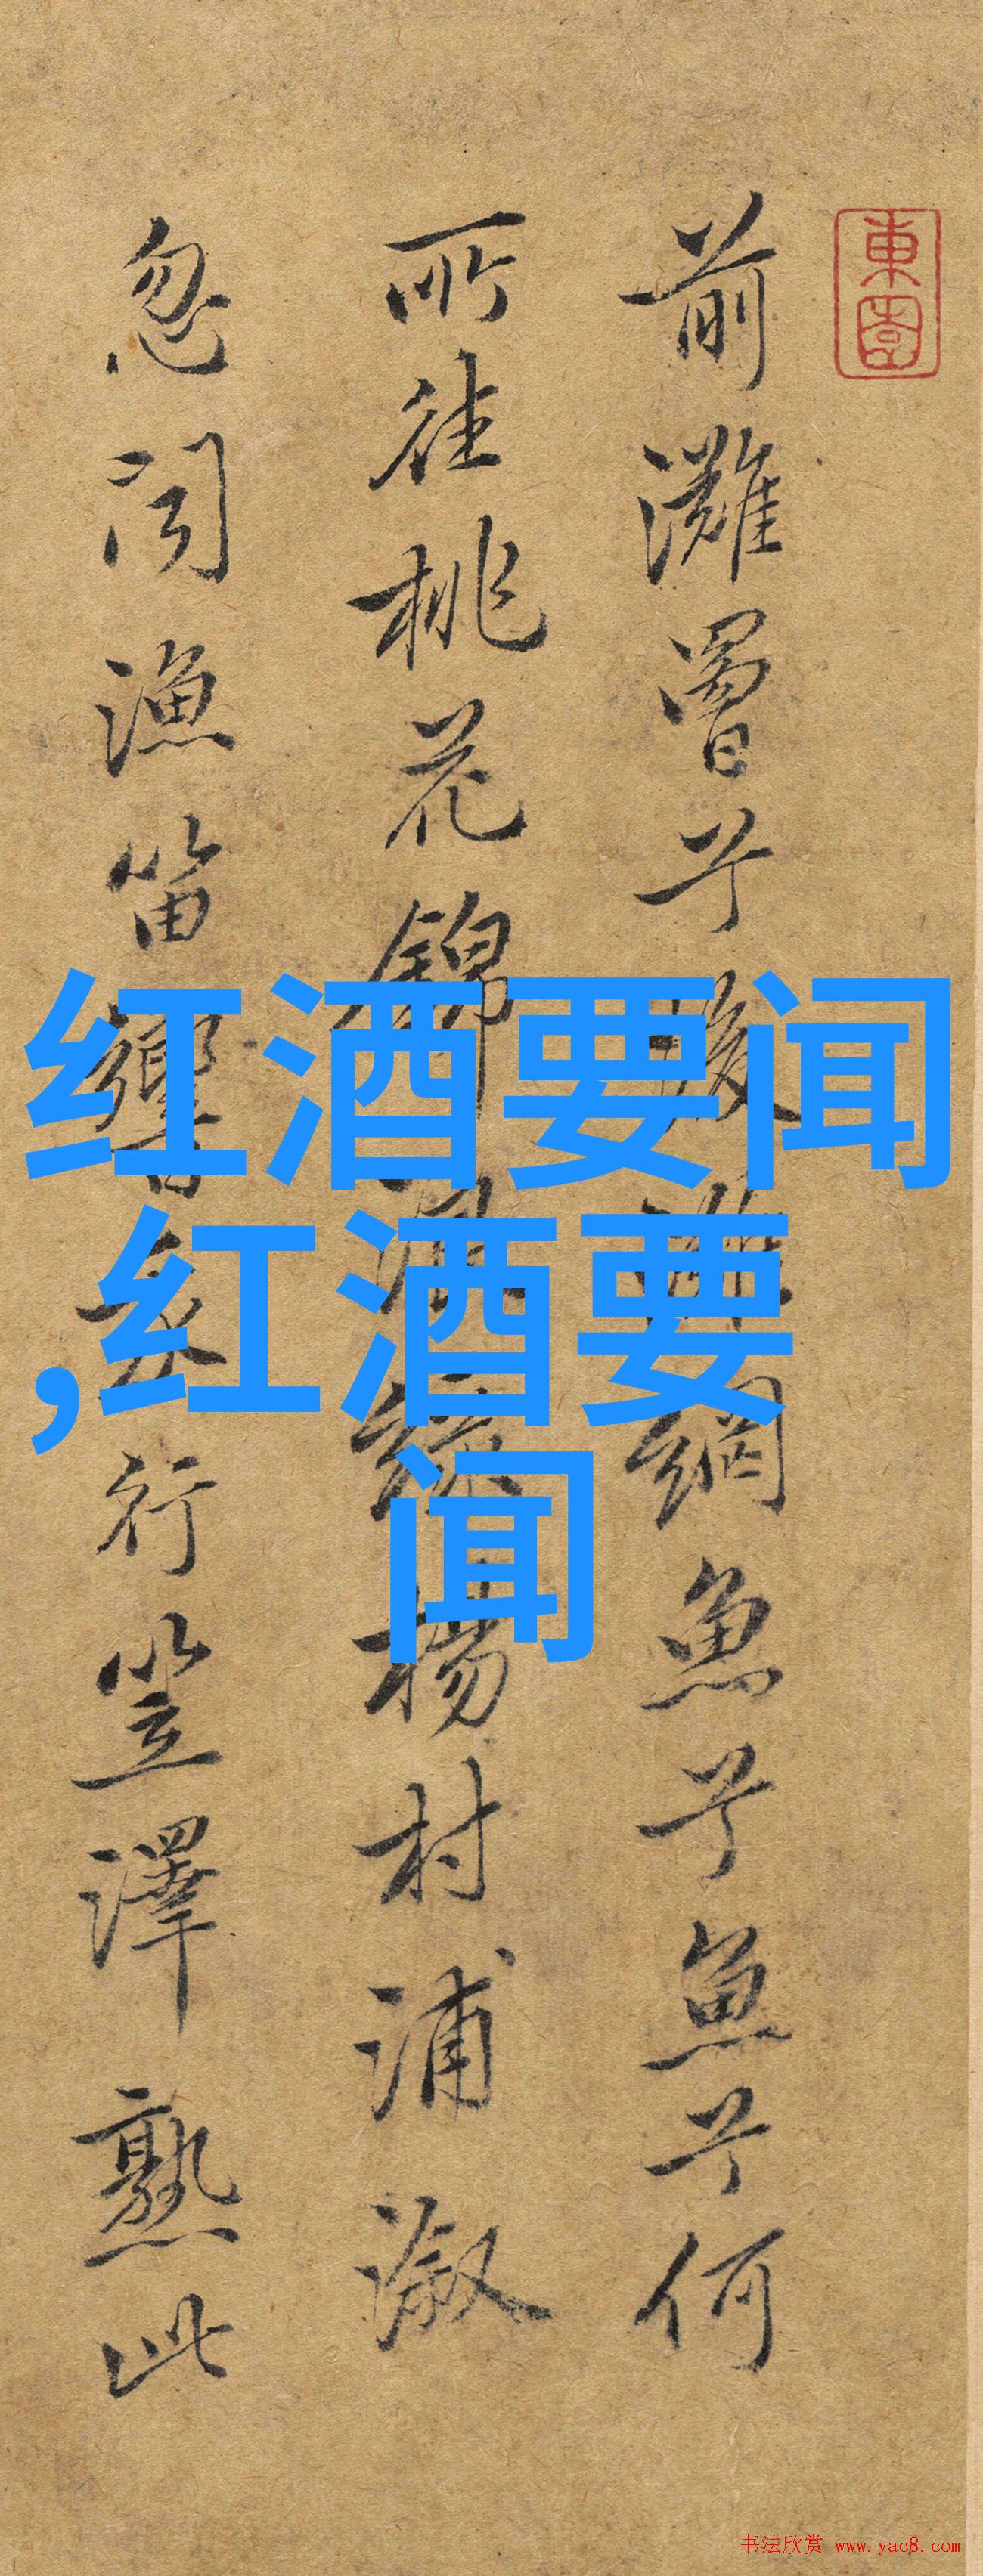 東
前灘罾兮後網魚兮魚兮何
所往桃花錦綠楊村浦漵
忽聞漁笛響行笠澤熟此
红酒要闻
,红酒要
闻
书法欣赏 www.yac8.com